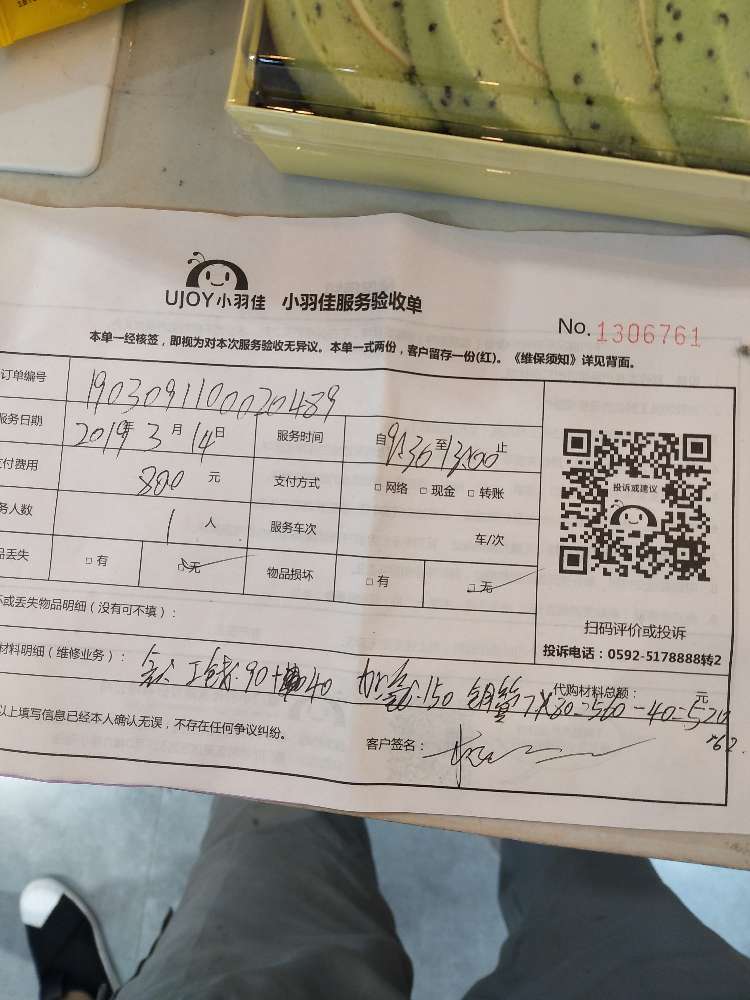 UJOY小羽佳 小羽佳服务验收单
No. 1306761
本单一经核签，即视为对本次服务验收无异议。本单一式两份，客户留存一份(红)。《维保须知》详见背面。
订单编号 19030911000201489
服务日期 2019年3月14日 服务时间 自9:30至13:00止
支付费用 800元 支付方式 □网络 □现金 □转账
务人数 1人 服务车次 车/次
品丢失 □有 □无 物品损坏 □有 □无
投诉或建议
扫码评价或投诉
投诉电话：0592-5178888转2
坏或丢失物品明细（没有可不填）：
材料明细（维修业务）： 工钱:90+ 40 加 :150 铜管7X80=560-40=520
代购材料总额： 元
以上填写信息已经本人确认无误，不存在任何争议纠纷。
客户签名：